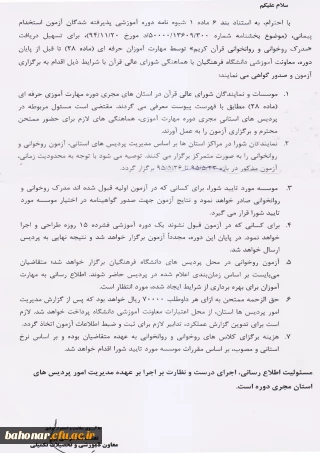 سلام علیکم
با احترام، به استناد بند ۶ ماده ۱ شیوه نامه دوره آموزشی پذیرفته شدگان آزمون استخدام
پیمانی، (موضوع بخشنامه شماره ۵۰۰۰۰/۱۳۶۰۹/۳۰۰ مورخ ۹۴/۱۱/۲۰)، برای تسهیل دریافت
«مدرک روخوانی و روانخوانی قرآن کریم» توسط مهارت آموزان حرفه ای (ماده ۲۸) تا قبل از پایان
دوره، معاونت آموزشی دانشگاه فرهنگیان با هماهنگی شورای عالی قرآن با شرایط ذیل اقدام به برگزاری
آزمون و صدور گواهی می نمایند:
۱. موسسات و نمایندگان شورای عالی قرآن در استان های مجری دوره مهارت آموزی حرفه ای
(ماده ۲۸) مطابق با فهرست پیوست معرفی می گردند. مقتضی است مسئول مربوطه در
پردیس های استانی مجری دوره مهارت آموزی، هماهنگی های لازم برای حضور ممتحن
محترم و برگزاری آزمون را به عمل آورند.
۲. نمایندگان شورا در مراکز استان ها بر اساس مدیریت پردیس های استانی، آزمون روخوانی و
روانخوانی را به صورت متمرکز برگزار می کنند. توصیه می شود با توجه به محدودیت زمانی،
آزمون مذکور در بازه برگزار گردد.
۳. موسسه مورد تایید شورا، برای کسانی که در آزمون اولیه قبول شده اند مدرک روخوانی و
روانخوانی صادر خواهد نمود و نتایج آزمون جهت صدور گواهینامه در اختیار موسسه مورد
تایید شورا قرار می گیرد.
۴. برای کسانی که در آزمون قبول نشوند، یک دوره آموزشی فشرده ۱۵ روزه طراحی و اجرا
خواهد نمود. در پایان این دوره، مجدداً آزمون برگزار خواهد شد و نتیجه نهایی به پردیس
اعلام خواهد شد.
۵. آزمون روخوانی در محل پردیس های دانشگاه فرهنگیان برگزار خواهد شد؛ متقاضیان
می‌بایست بر اساس زمان‌بندی اعلام شده در پردیس حاضر شوند. اطلاع رسانی به مهارت
آموزان برای بهره برداری از شرایط ایجاد شده، مورد انتظار است.
۶. حق الزحمه ممتحن به ازای هر داوطلب ۷۰۰۰۰ ریال خواهد بود که پس از گزارش مدیریت
امور پردیس ها استان، از محل اعتبارات معاونت آموزشی دانشگاه پرداخت خواهد شد. لازم
است برای تدوین گزارش عملکرد، تدابیر لازم برای ثبت و ضبط اطلاعات آزمون اتخاذ گردد.
۷. هزینه برگزای کلاس های روخوانی و روانخوانی به عهده متقاضیان بوده و بر اساس نرخ
استانی و مصوب، بر اساس مقررات موسسه مورد تایید شورا اقدام خواهد شد.
مسئولیت اطلاع رسانی، اجرای درست و نظارت بر اجرا بر عهده مدیریت امور پردیس های
استان مجری دوره است.
معاون آموزشی و تحصیلات تکمیلی
bahonar.cfu.ac.ir